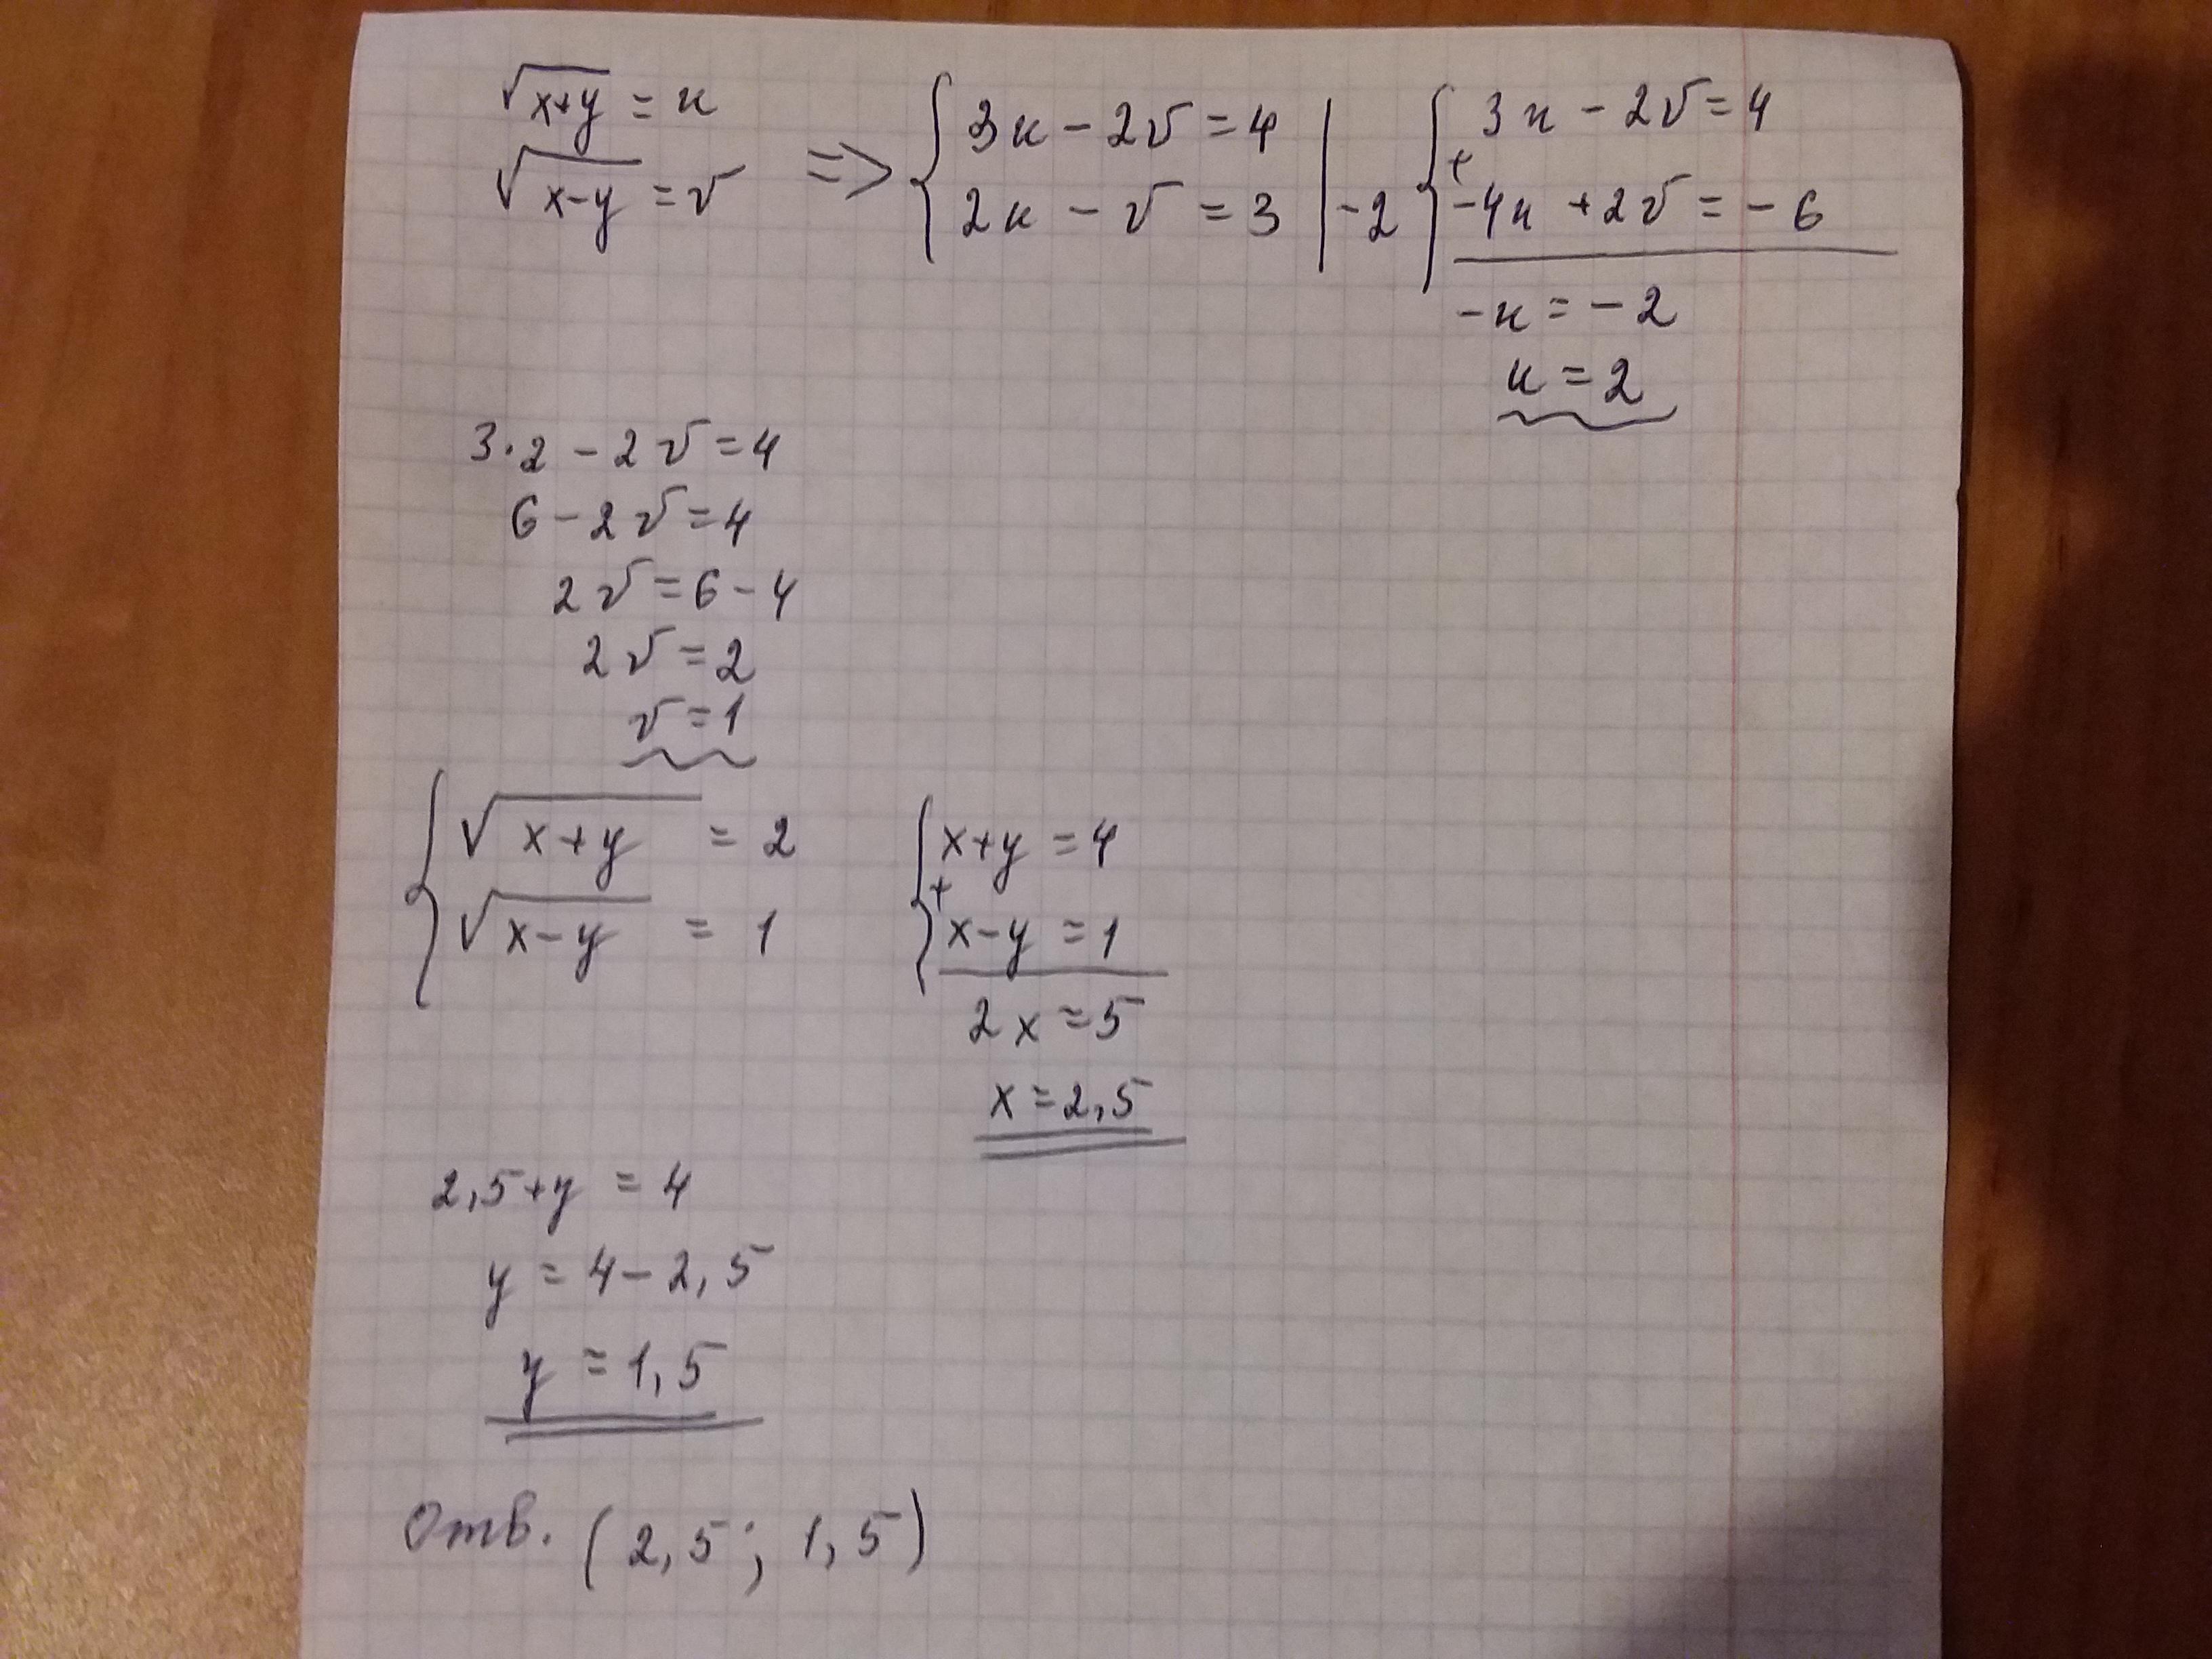 √x+y = u
√x-y = v => { 3u - 2v = 4 2u - v = 3 | -2 { 3u - 2v = 4 + -4u + 2v = -6
-u = -2
u = 2
3·2 - 2v = 4
6 - 2v = 4
2v = 6 - 4
2v = 2
v = 1
{ √x+y = 2 { x+y = 4
√x-y = 1 + x-y = 1
2x = 5
x = 2,5
2,5+y = 4
y = 4 - 2,5
y = 1,5
Отв. (2,5; 1,5)